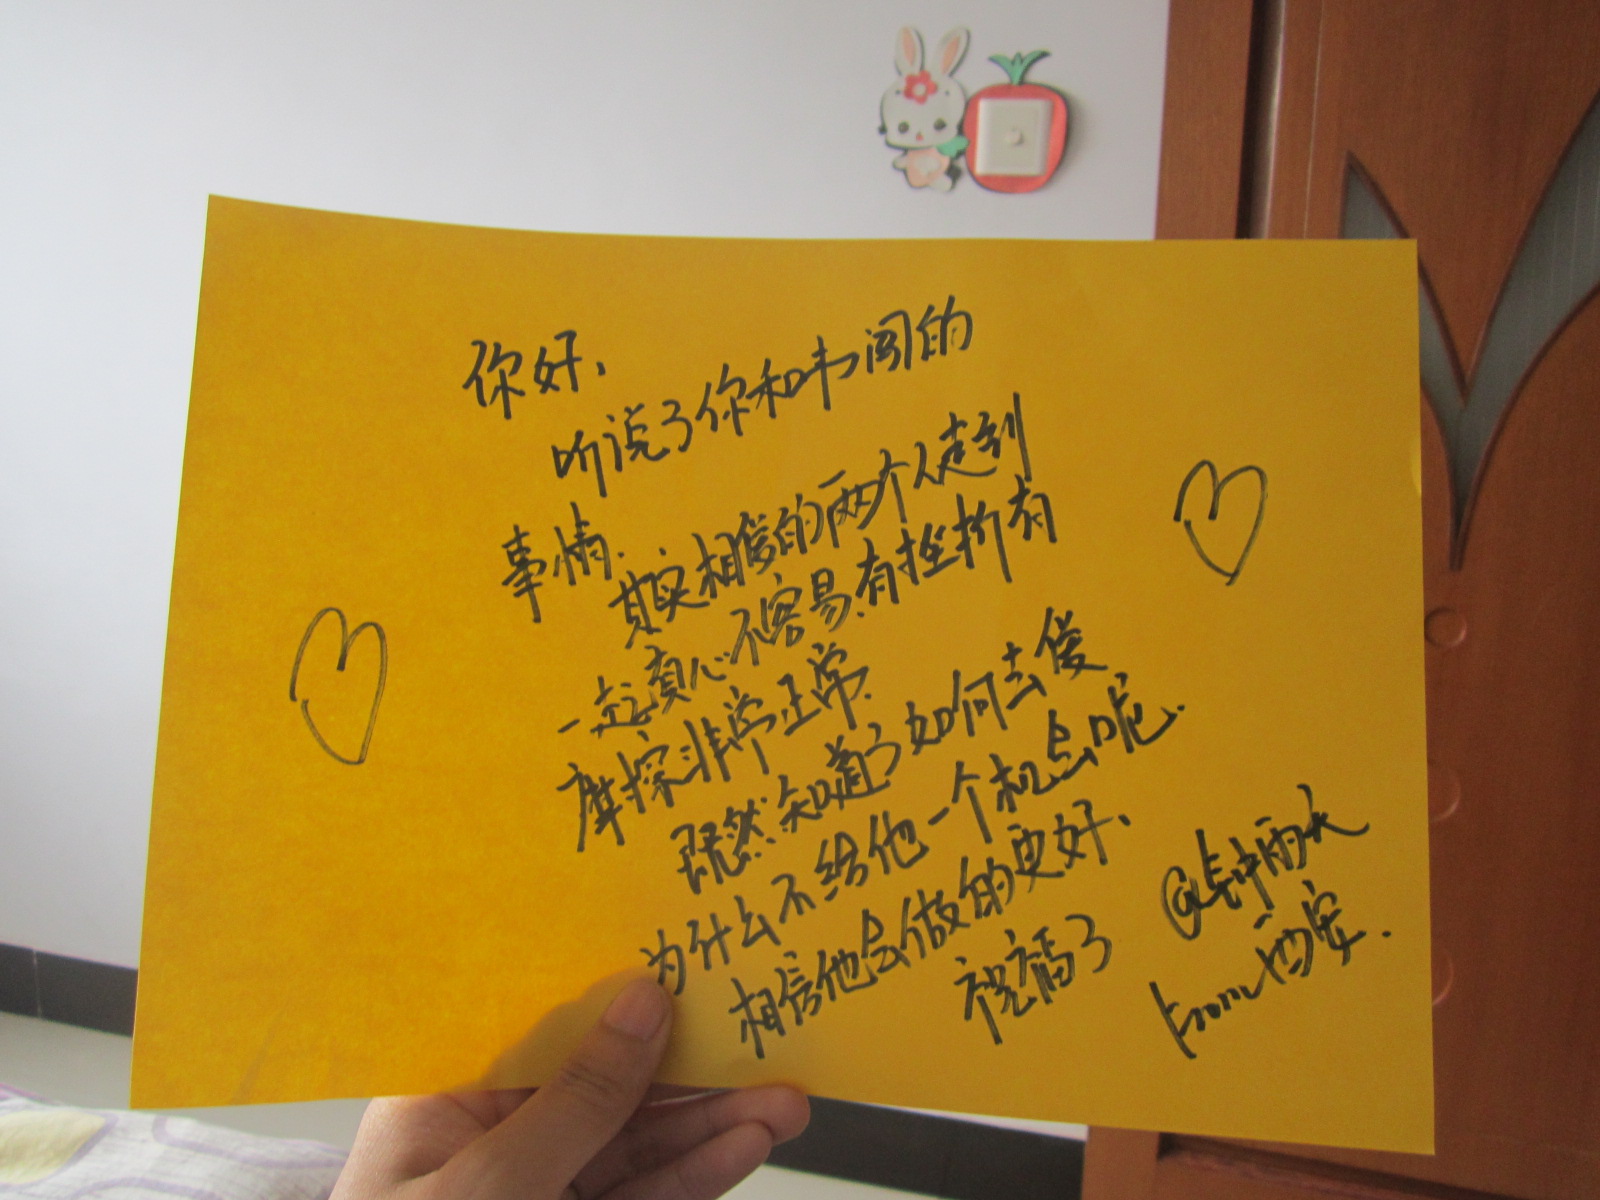 你好、
听说了你和韦闯的
事情.
其实相爱的两个人走到
一起真心不容易.有挫折有
摩擦非常正常.
既然知道了如何去爱
为什么不给他一个机会呢.
相信他会做的更好、
祝福了
from 西安.